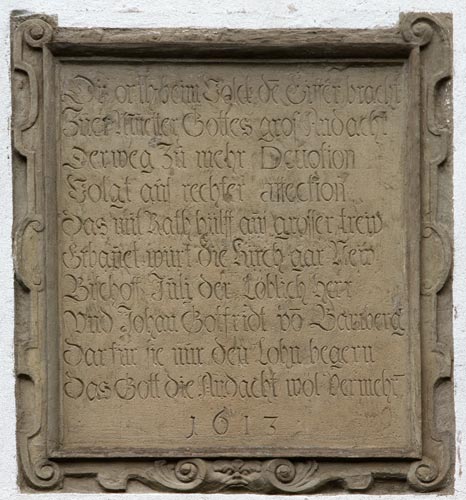 Diß orth beim Volck dē Eiffer bracht
Zuer Mueter Gottes gros Andacht
Der weg zu mehr Devotion
Volgt auß rechter affection
Das mit Rath hülff auß grosser trew
Erbauet wurt die Kirch gar New
Bischoff Juli der Löblich herr
Und Johan Gotfridt vō Bamberg
Dar für sie nur den Lohn begern
Das Gott die Andacht wol vermehr
1613